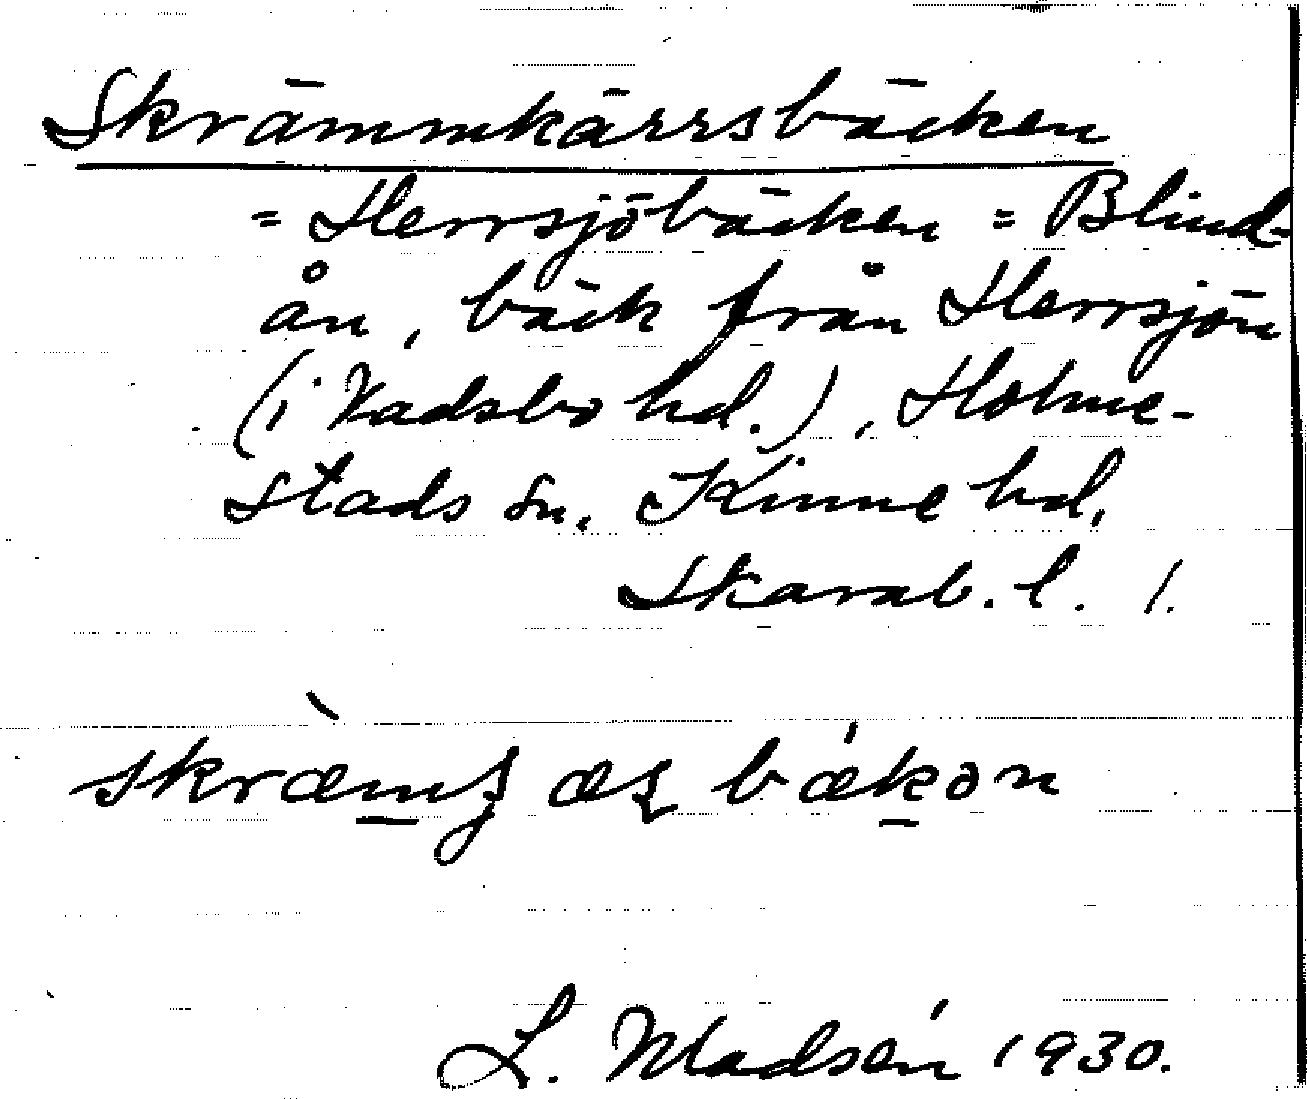 Skrämmkärrsbäcken
= Herrsjöbäcken = Blind-
ån, bäck från Herrsjön
(i Vadsbo hd.), Holme-
stads sn. Kinne hd,
Skarab. l. 1.
bækən
L. Madsén 1930.